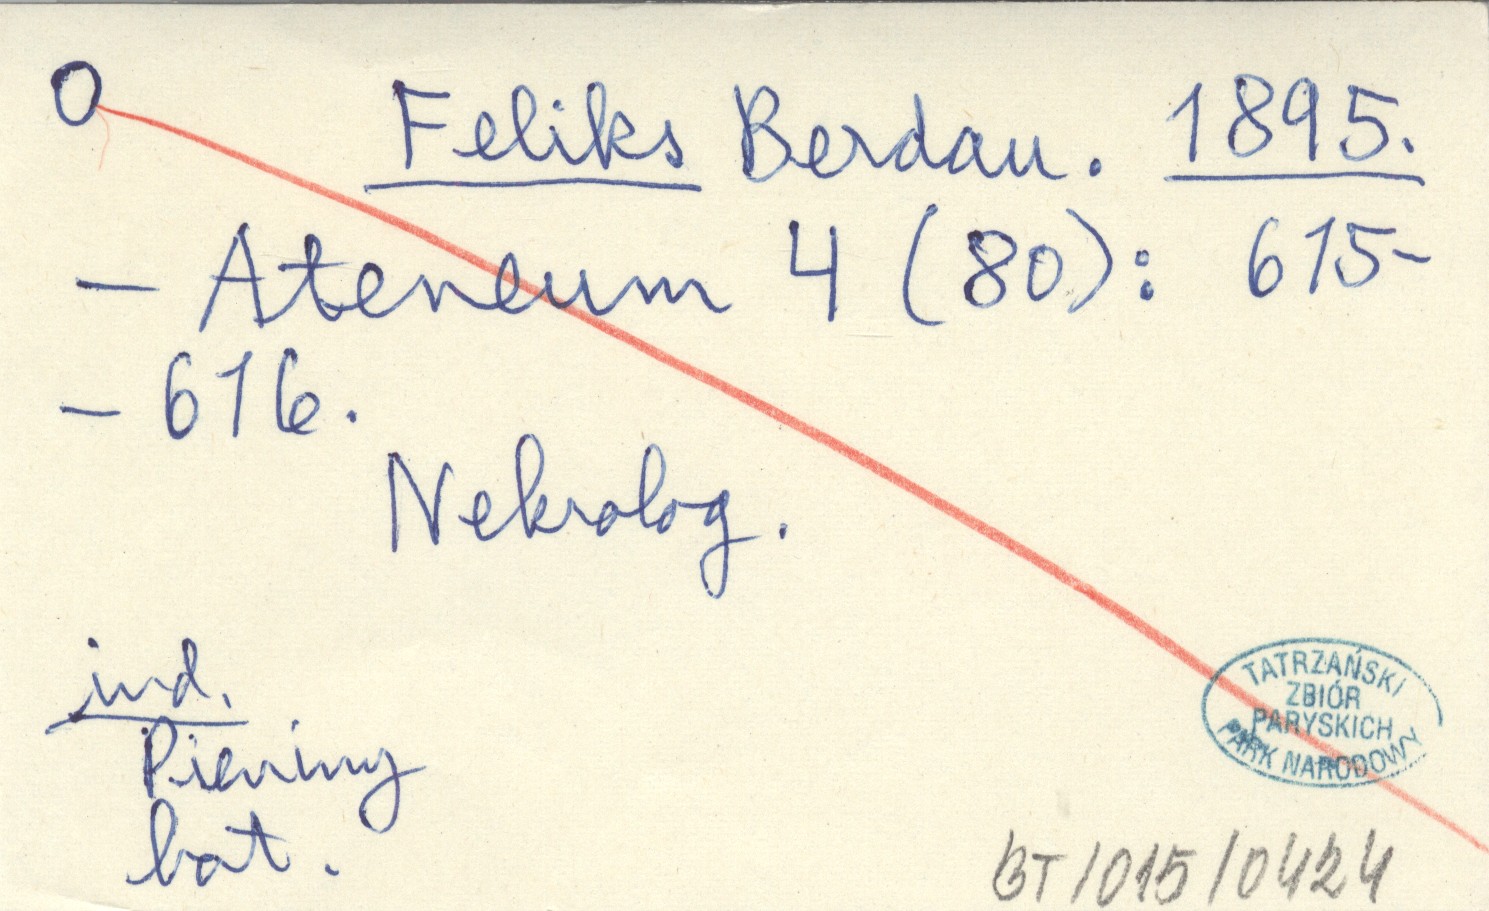 O Feliks Berdau. 1895.
— Ateneum 4 (80): 615-
- 616.
Nekrolog.
ind.
Pieniny
bot.
TATRZAŃSKI
ZBIÓR
PARYSKICH
PARK NARODOWY
BT/015/0424